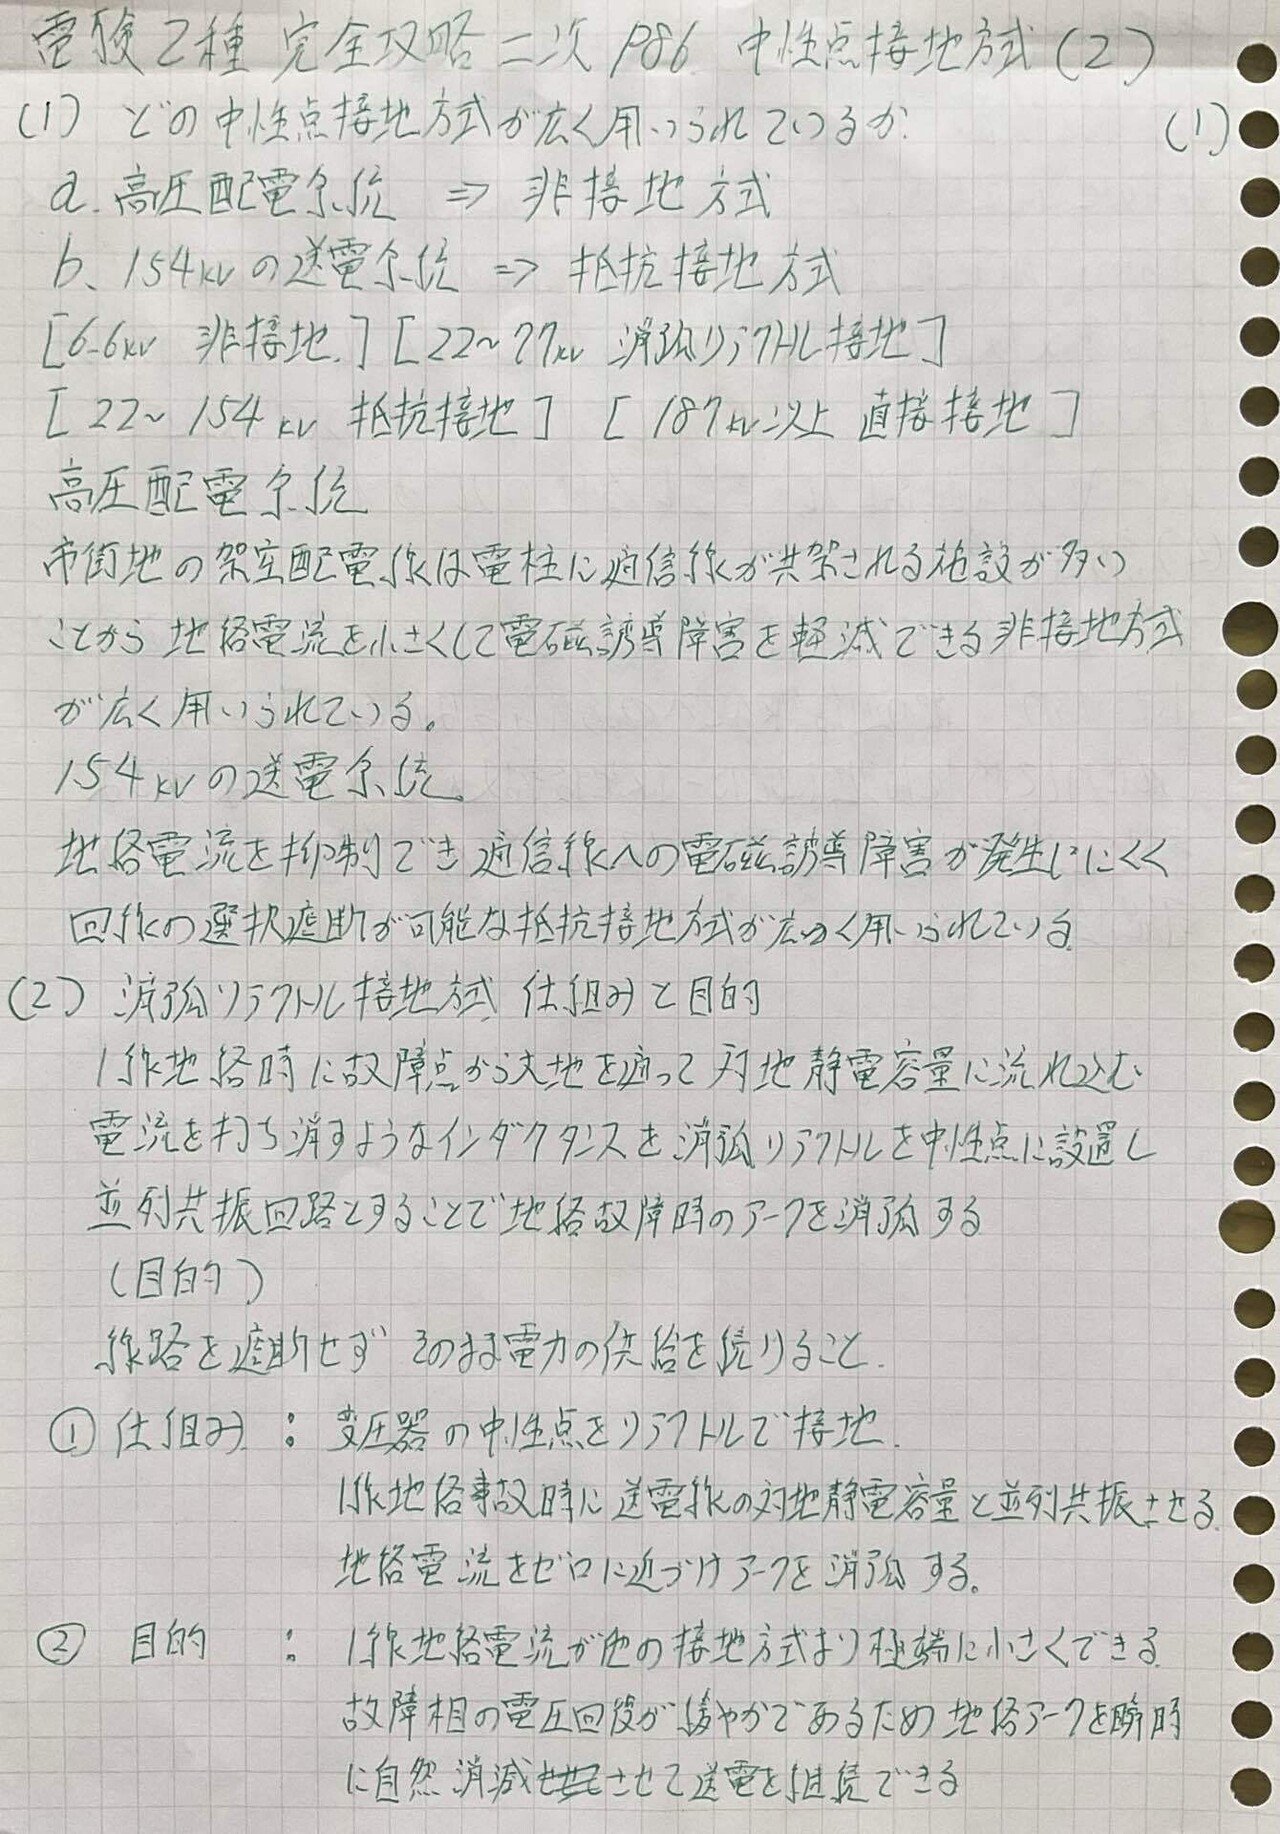 電験2種 完全攻略 二次 P86 中性点接地方式(2)
(1) どの中性点接地方式が広く用いられているか. (1)
a. 高圧配電系統 ⇒ 非接地方式
b. 154kvの送電系統 ⇒ 抵抗接地方式
[6.6kv 非接地.] [22~77kv 消弧リアクトル接地]
[22~154kv 抵抗接地] [187kv以上 直接接地]
高圧配電系統
市街地の架空配電線は電柱に通信線が共架される施設が多い
ことから地絡電流を小さくして電磁誘導障害を軽減できる非接地方式
が広く用いられている。
154kvの送電系統.
地絡電流を抑制でき通信線への電磁誘導障害が発生しにくく
回線の選択遮断が可能な抵抗接地方式が広く用いられている.
(2) 消弧リアクトル接地方式 仕組みと目的
1線地絡時に故障点から大地を通って対地静電容量に流れ込む
電流を打ち消すようなインダクタンスを消弧リアクトルを中性点に設置し
並列共振回路とすることで地絡故障時のアークを消弧する
(目的)
線路を遮断せず そのまま電力の供給を続けること.
① 仕組み : 変圧器の中性点をリアクトルで接地.
1線地絡事故時に送電線の対地静電容量と並列共振させる.
地絡電流をゼロに近づけアークを消弧する。
② 目的 : 1線地絡電流が他の接地方式より極端に小さくできる.
故障相の電圧回復が緩やかであるため地絡アークを瞬時
に自然消滅させて送電を継続できる